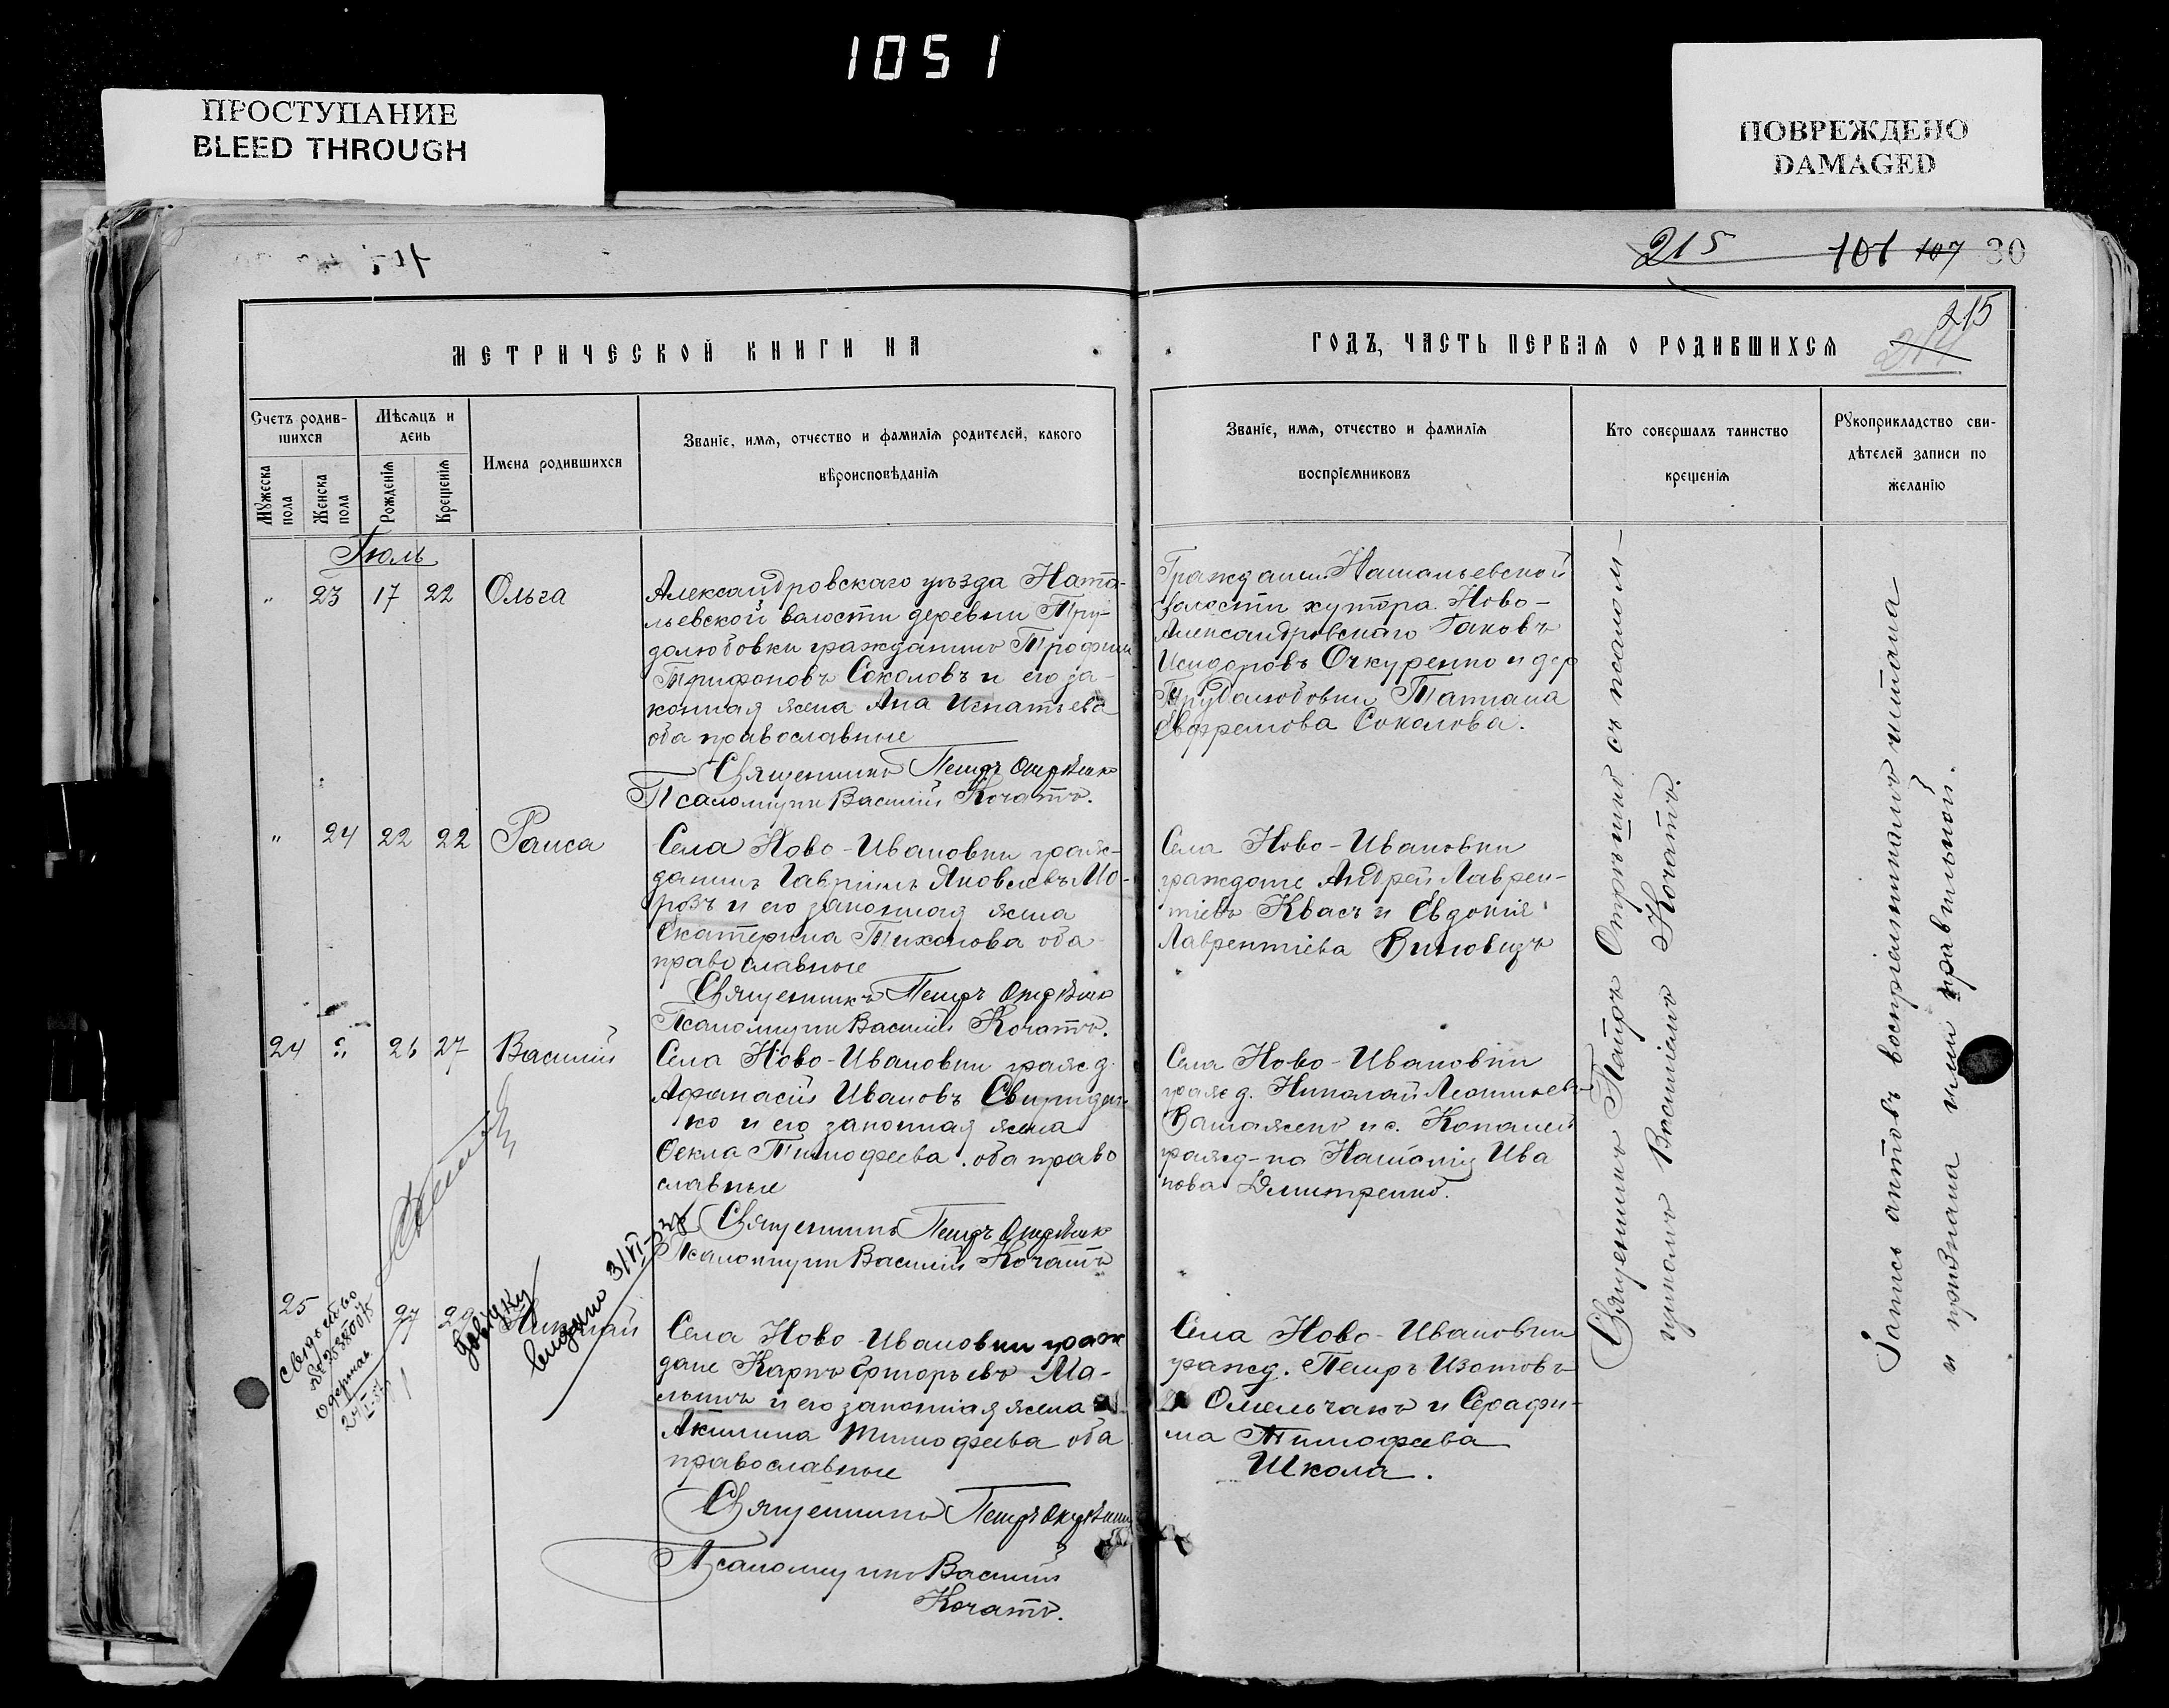 1051
ПРОСТУПАНИЕ
BLEED THROUGH
ПОВРЕЖДЕНО
DAMAGED
215 101 107 30
215
214
МЕТРИЧЕСКОЙ КНИГИ НА
ГОДЪ, ЧАСТЬ ПЕРВАЯ О РОДИВШИХСЯ
Счетъ родив-
шихся
Мужеска пола
Женска пола
Мѣсяцъ и
день
Рожденія
Крещенія
Имена родившихся
Званіе, имя, отчество и фамилія родителей, какого
вѣроисповѣданія
Званіе, имя, отчество и фамилія
воспріемниковъ
Кто совершалъ таинство
крещенія
Рукоприкладство сви-
дѣтелей записи по
желанію
Іюль
" 23 17 22 Ольга
Александровскаго уѣзда Ната-
льевской волости деревни Тру-
долюбовки гражданинъ Трофим
Трифоновъ Соколовъ и его за-
конная жена Ана Игнатьева
оба православные
Священникъ Петръ
Псаломщикъ Василій Кочатъ.
Натальевской
волости хутора Ново-
Александровскаго Іаковъ
Исидоровъ Очкуренко и дер
Трудолюбовки Татіана
Евфремова Соколова.
" 24 22 22 Раиса
Села Ново-Ивановки граж-
данинъ Гавріилъ Яковлевъ Мо-
розъ и его законная жена
Екатерина Тихонова оба
православные
Священникъ Петръ
Псаломщикъ Василій Кочатъ.
Села Ново-Ивановки
граждане Андрей Лаврен-
тіевъ Квасъ и Евдокія
Лаврентіева
24 " 26 27 Василій
Села Ново-Ивановки гражд.
Афанасій Ивановъ Свириден-
ко и его законная жена
Ѳекла Тимофеева. оба право
славные
Священникъ Петръ
Псаломщикъ Василій Кочатъ
Села Ново-Ивановки
гражд. Николай Леонтьев
и с.
гражд-ка Наталія Ива
нова Дмитренко.
25 27 29 Николай
довідку
видано 3/VI-38
одержав
Села Ново-Ивановки граж
дане Карпъ Григорьевъ Ма-
и его законная жена
Акилина Тимофеева оба
православные
Священникъ Петръ
Псаломщикъ Василій
Кочатъ.
Села Ново-Ивановки
гражд. Петръ Изотовъ
Омельчакъ и Серафи-
ма Тимофеева
Школа.
Священникъ Петръ съ псалом-
щикомъ Василіемъ Кочатъ.
Запись актовъ воспріемникамъ читана
и признана ими правильной.